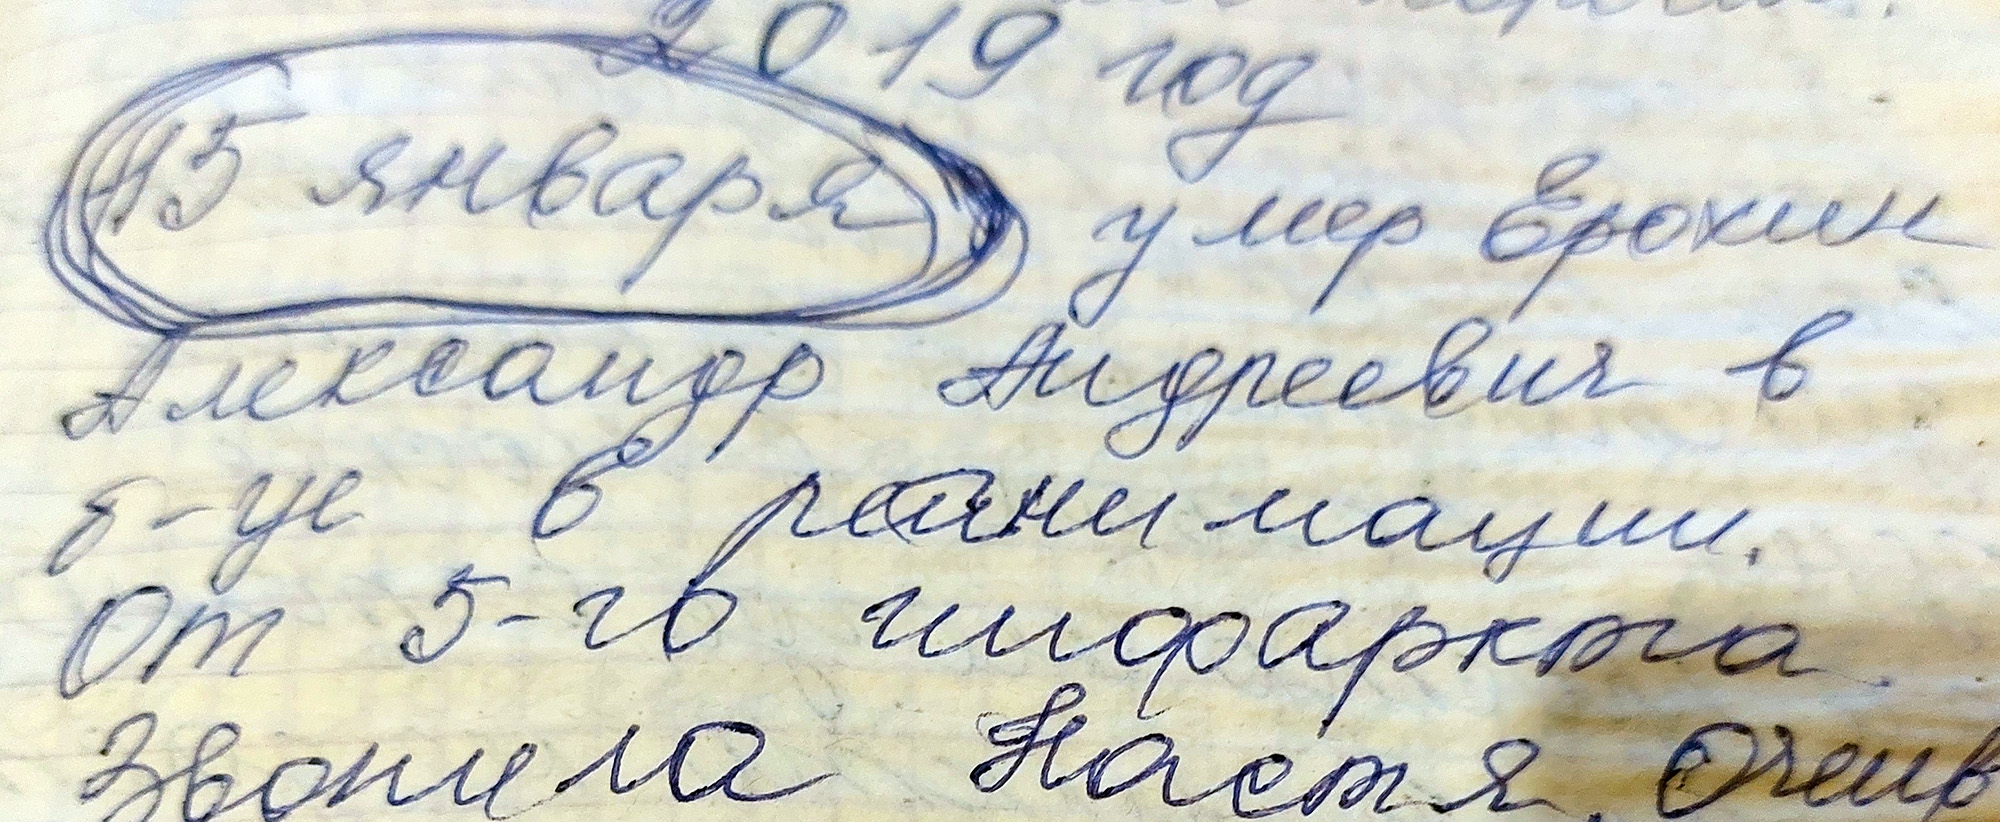 2019 год
15 января умер Ерохин
Александр Андреевич в
б-це в реанимации.
От 5-го инфаркта.
Звонила Настя. Очень